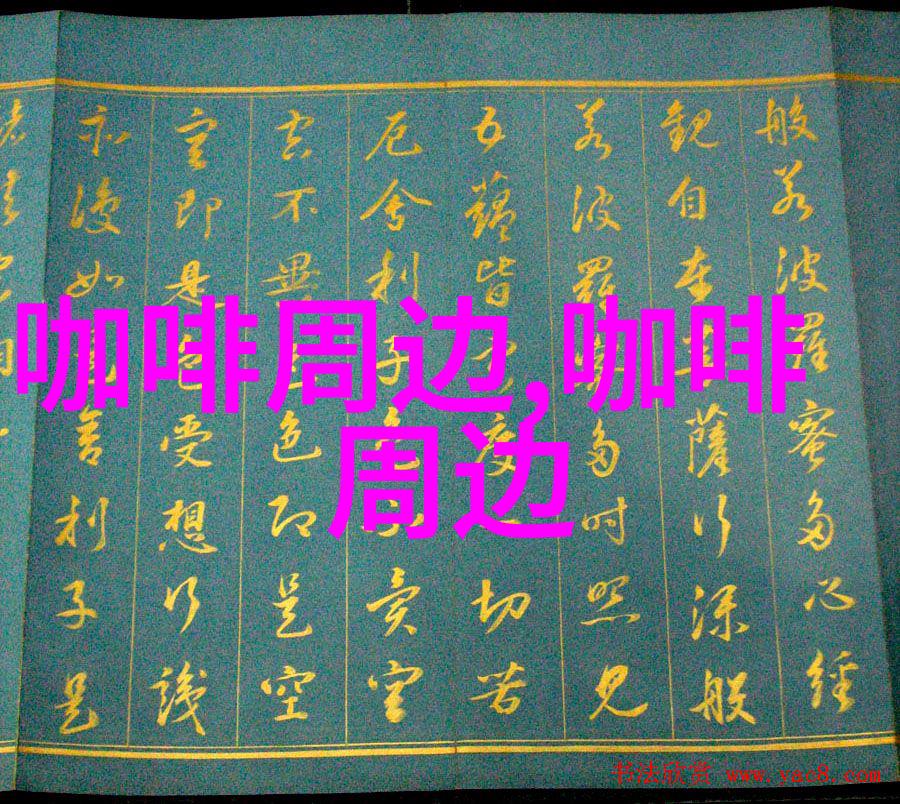 咖啡周边,咖啡
周边
般若波羅蜜多心經
觀自在菩薩行深般
若波羅多時照見
五蘊皆度切苦
厄舍利子色不異空
空不異色即是空
空即是色受想行識
亦復如舍利子是
书法欣赏 www.yac8.com